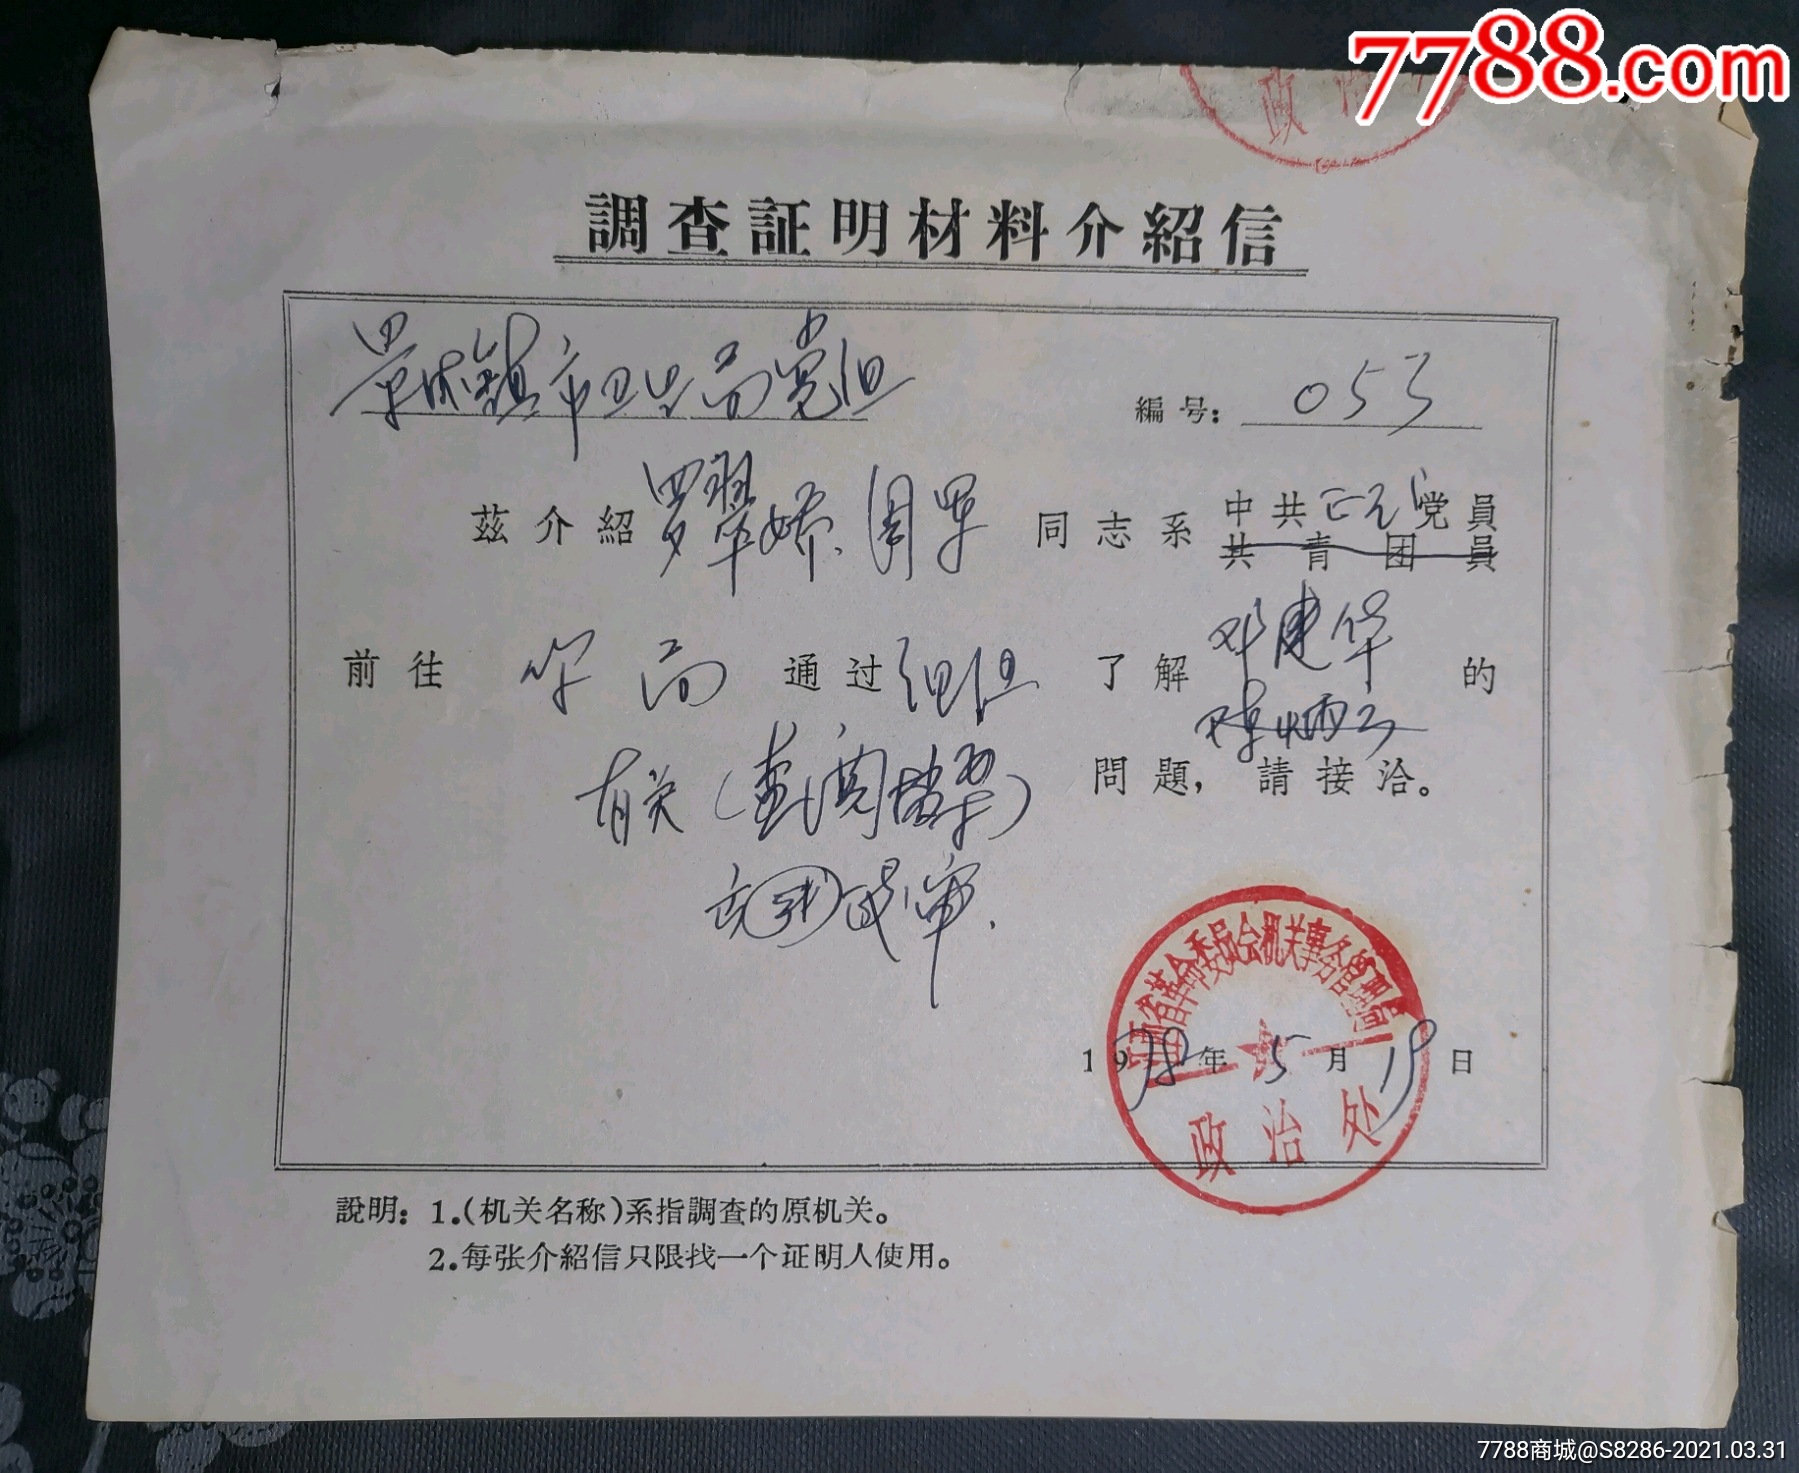 7788.com
政治
調查証明材料介紹信
景德镇市卫生局党组
編号: 053
茲介紹 同志系 中共正式党員
共青团員
前往 你局 通过组组 了解 邓建华 的
陈炳云
有关(查阅档案) 問題,請接洽。
江西省革命委员会机关事务管理局
1978年5月19日
政治处
說明: 1.(机关名称)系指調査的原机关。
2.每张介紹信只限找一个证明人使用。
7788商城@S8286-2021.03.31